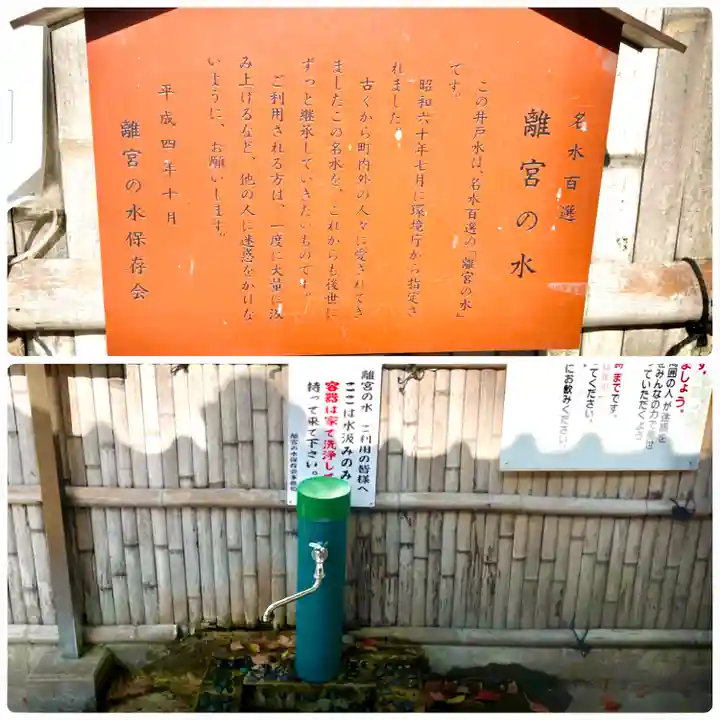 名水百選
離宮の水
この井戸水は、名水百選の「離宮の水」
です。
昭和六十年七月に環境庁から指定さ
れました。
古くから町内外の人々に愛されてき
ましたこの名水を、これからも後世に
ずっと継承していきたいものです。
ご利用される方は、一度に大量に汲
み上げるなど、他の人に迷惑をかけな
いように、お願いします。
平成四年十月
離宮の水保存会
離宮の水 ご利用の皆様へ
ここは水汲みのみ
容器は家で洗浄して
持って来て下さい。
離宮の水保存会事務局
ましょう。
囲の人が迷惑を
みんなの力で
っていただくよう
までです。
てください。
にお飲みください